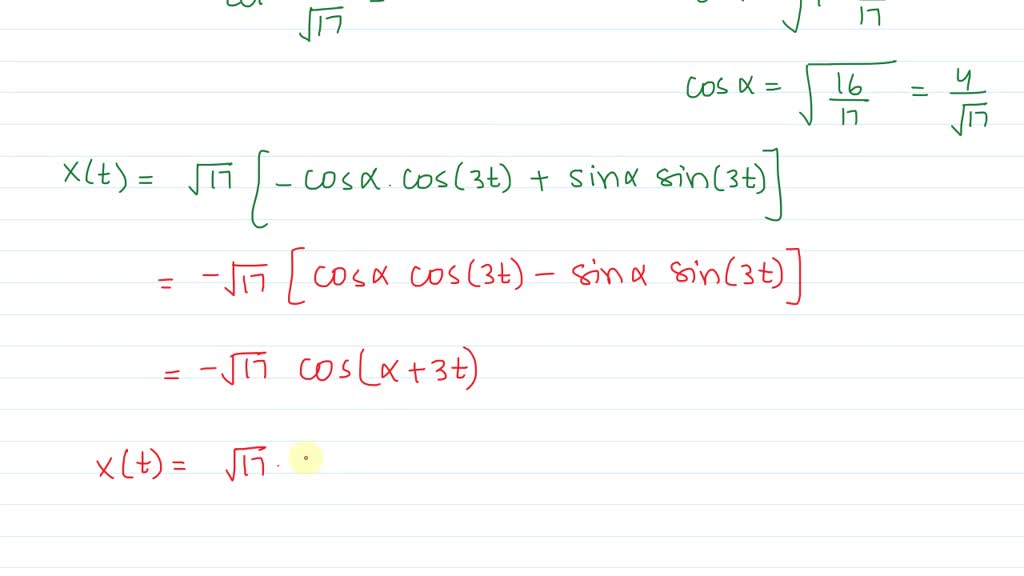 √17 =
17
cos α = √(16/17) = 4/√17
x(t) = √17 [ - cosα . cos(3t) + sinα sin(3t) ]
= -√17 [ cosα cos(3t) - sinα sin(3t) ]
= -√17 cos(α + 3t)
x(t) = √17 .